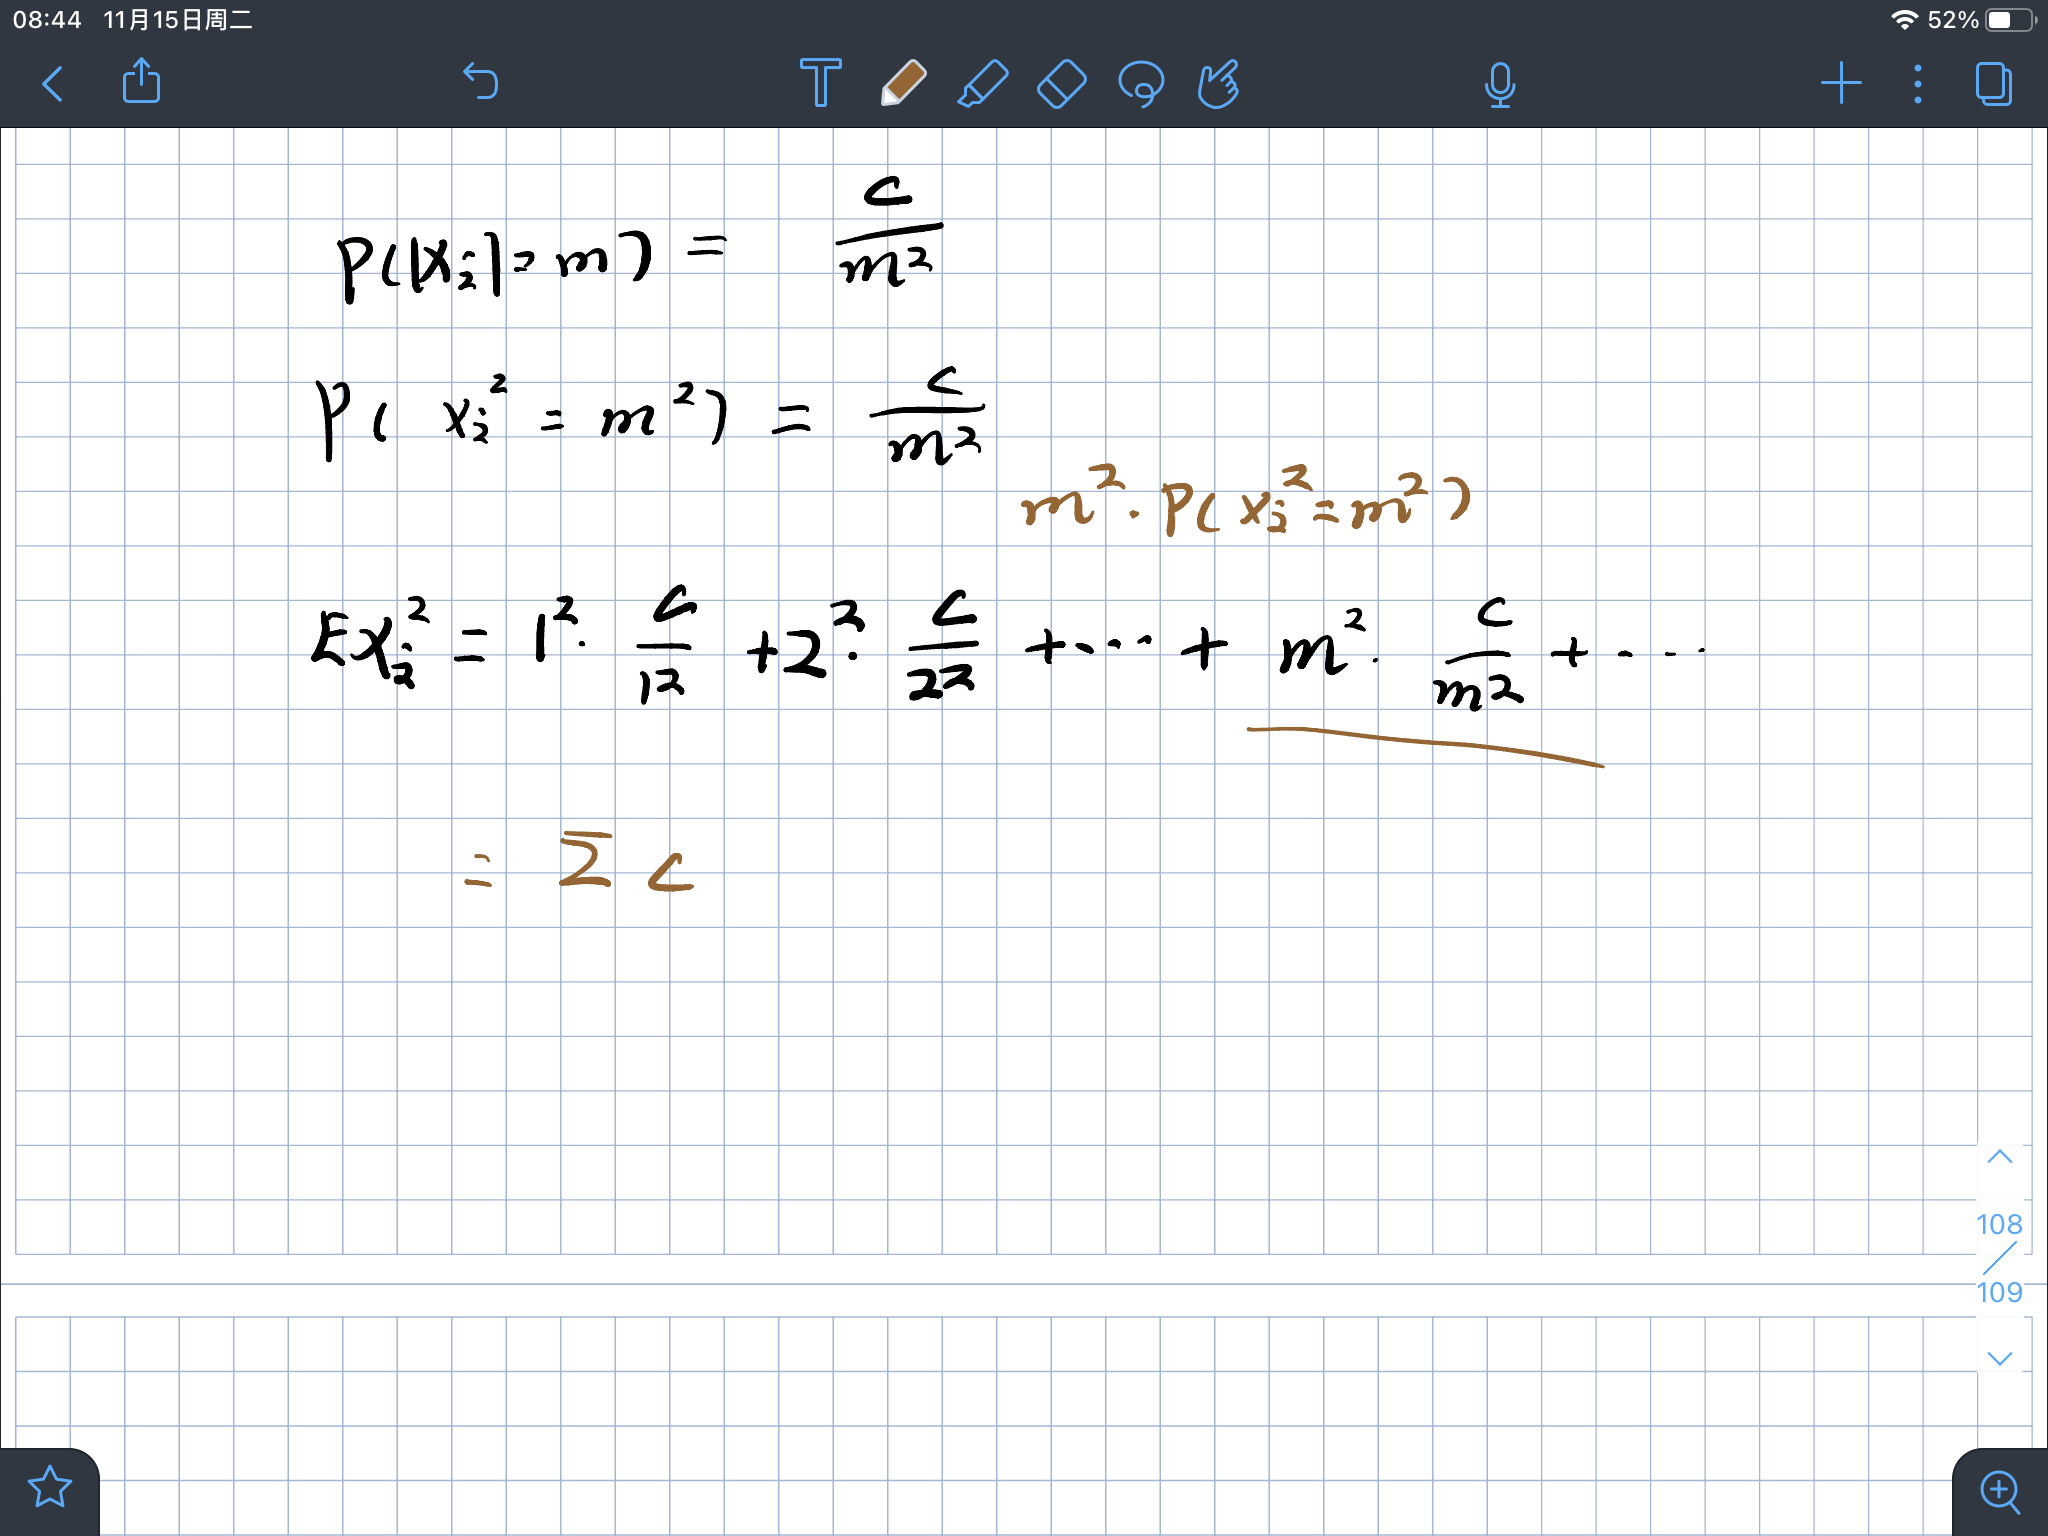 08:44 11月15日周二 52%
P(|Xᵢ| = m) = c/m²
P( Xᵢ² = m²) = c/m²
m² · P( Xᵢ² = m²)
EXᵢ² = 1² · c/1² + 2² · c/2² + ··· + m² · c/m² + ····
= Σ c
108
109